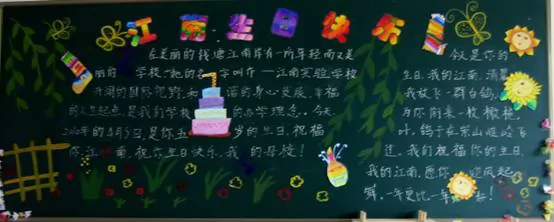 江南生日快乐
在美丽的钱塘江南岸有一所年轻而又美
丽的学校,她的名字叫作——江南实验学校
开阔的国际视野,和谐的身心发展,幸福
的人生起点,是我们学校的办学理念。今天
2010年的9月3日,是你五岁的生日,祝福
你,江南,祝你生日快乐,我的母校!
今天是你的
生日,我的江南,清晨
我放飞一群白鸽,
为你衔来一枚橄榄
叶,鸽子在崇山峻岭飞
过。我们祝福你的生日,
我的江南,愿你逆风起
舞,一年更比一年